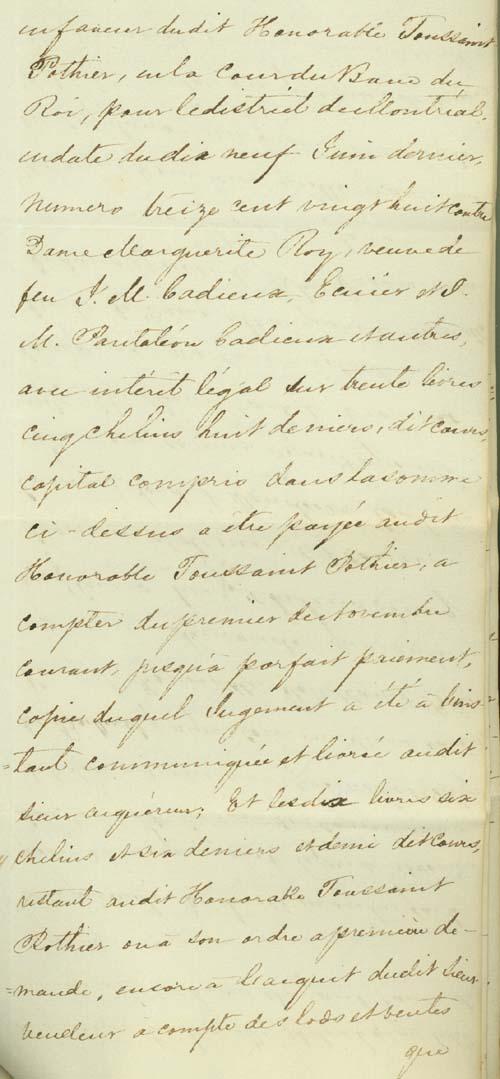 en faveur dudit Honorable Toussaint
Pothier, en la Cour du Banc du
Roi, pour le district de Montréal,
en date du dix neuf Juin dernier,
numero treize cent vingt huit contre
Dame Marguerite Roy, veuve de
feu J. M. Cadieux, Ecuiier et J.
M. Pantaléon Cadieux et autres,
avec intéret légal sur trente livres
cinq Chelins huit deniers, dit cours,
capital compris dans la somme
ci-dessus a être payée audit
Honorable Toussaint Pothier, a
compter du premier de Novembre
courant, jusqu'à parfait paiement,
copie duquel Jugement a été à l'ins-
=tant communiquée et livrée audit
sieur acquéreur; Et les dix livres six
chelins et six deniers et demi dit cours,
restant audit Honorable Toussaint
Pothier ou à son ordre a première de-
=mande, encore à l'acquit dudit sieur
vendeur a compte des lods et ventes
que